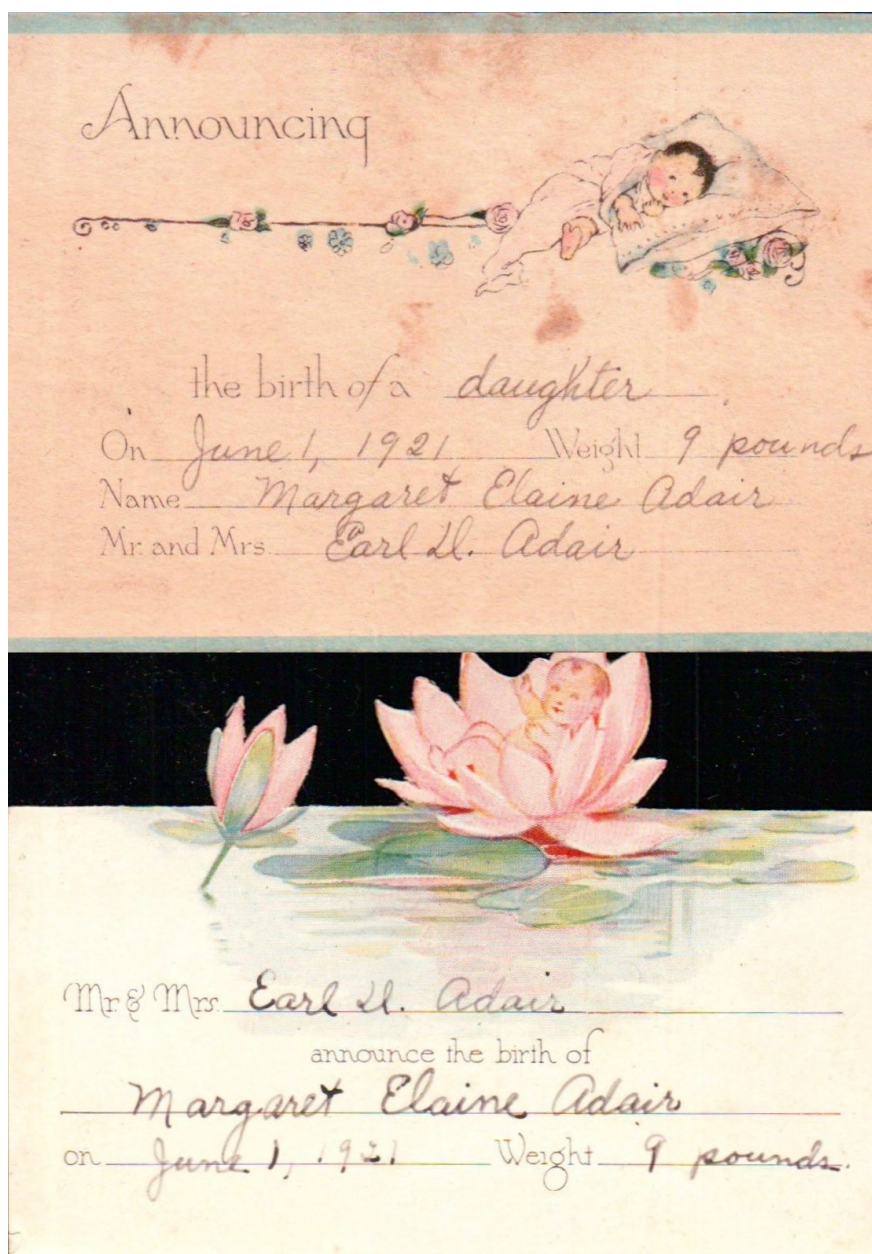 Announcing
the birth of a daughter.
On June 1, 1921 Weight 9 pounds
Name Margaret Elaine Adair
Mr. and Mrs. Earl D. Adair
Mr. & Mrs. Earl D. Adair
announce the birth of
Margaret Elaine Adair
on June 1, 1921 Weight 9 pounds.